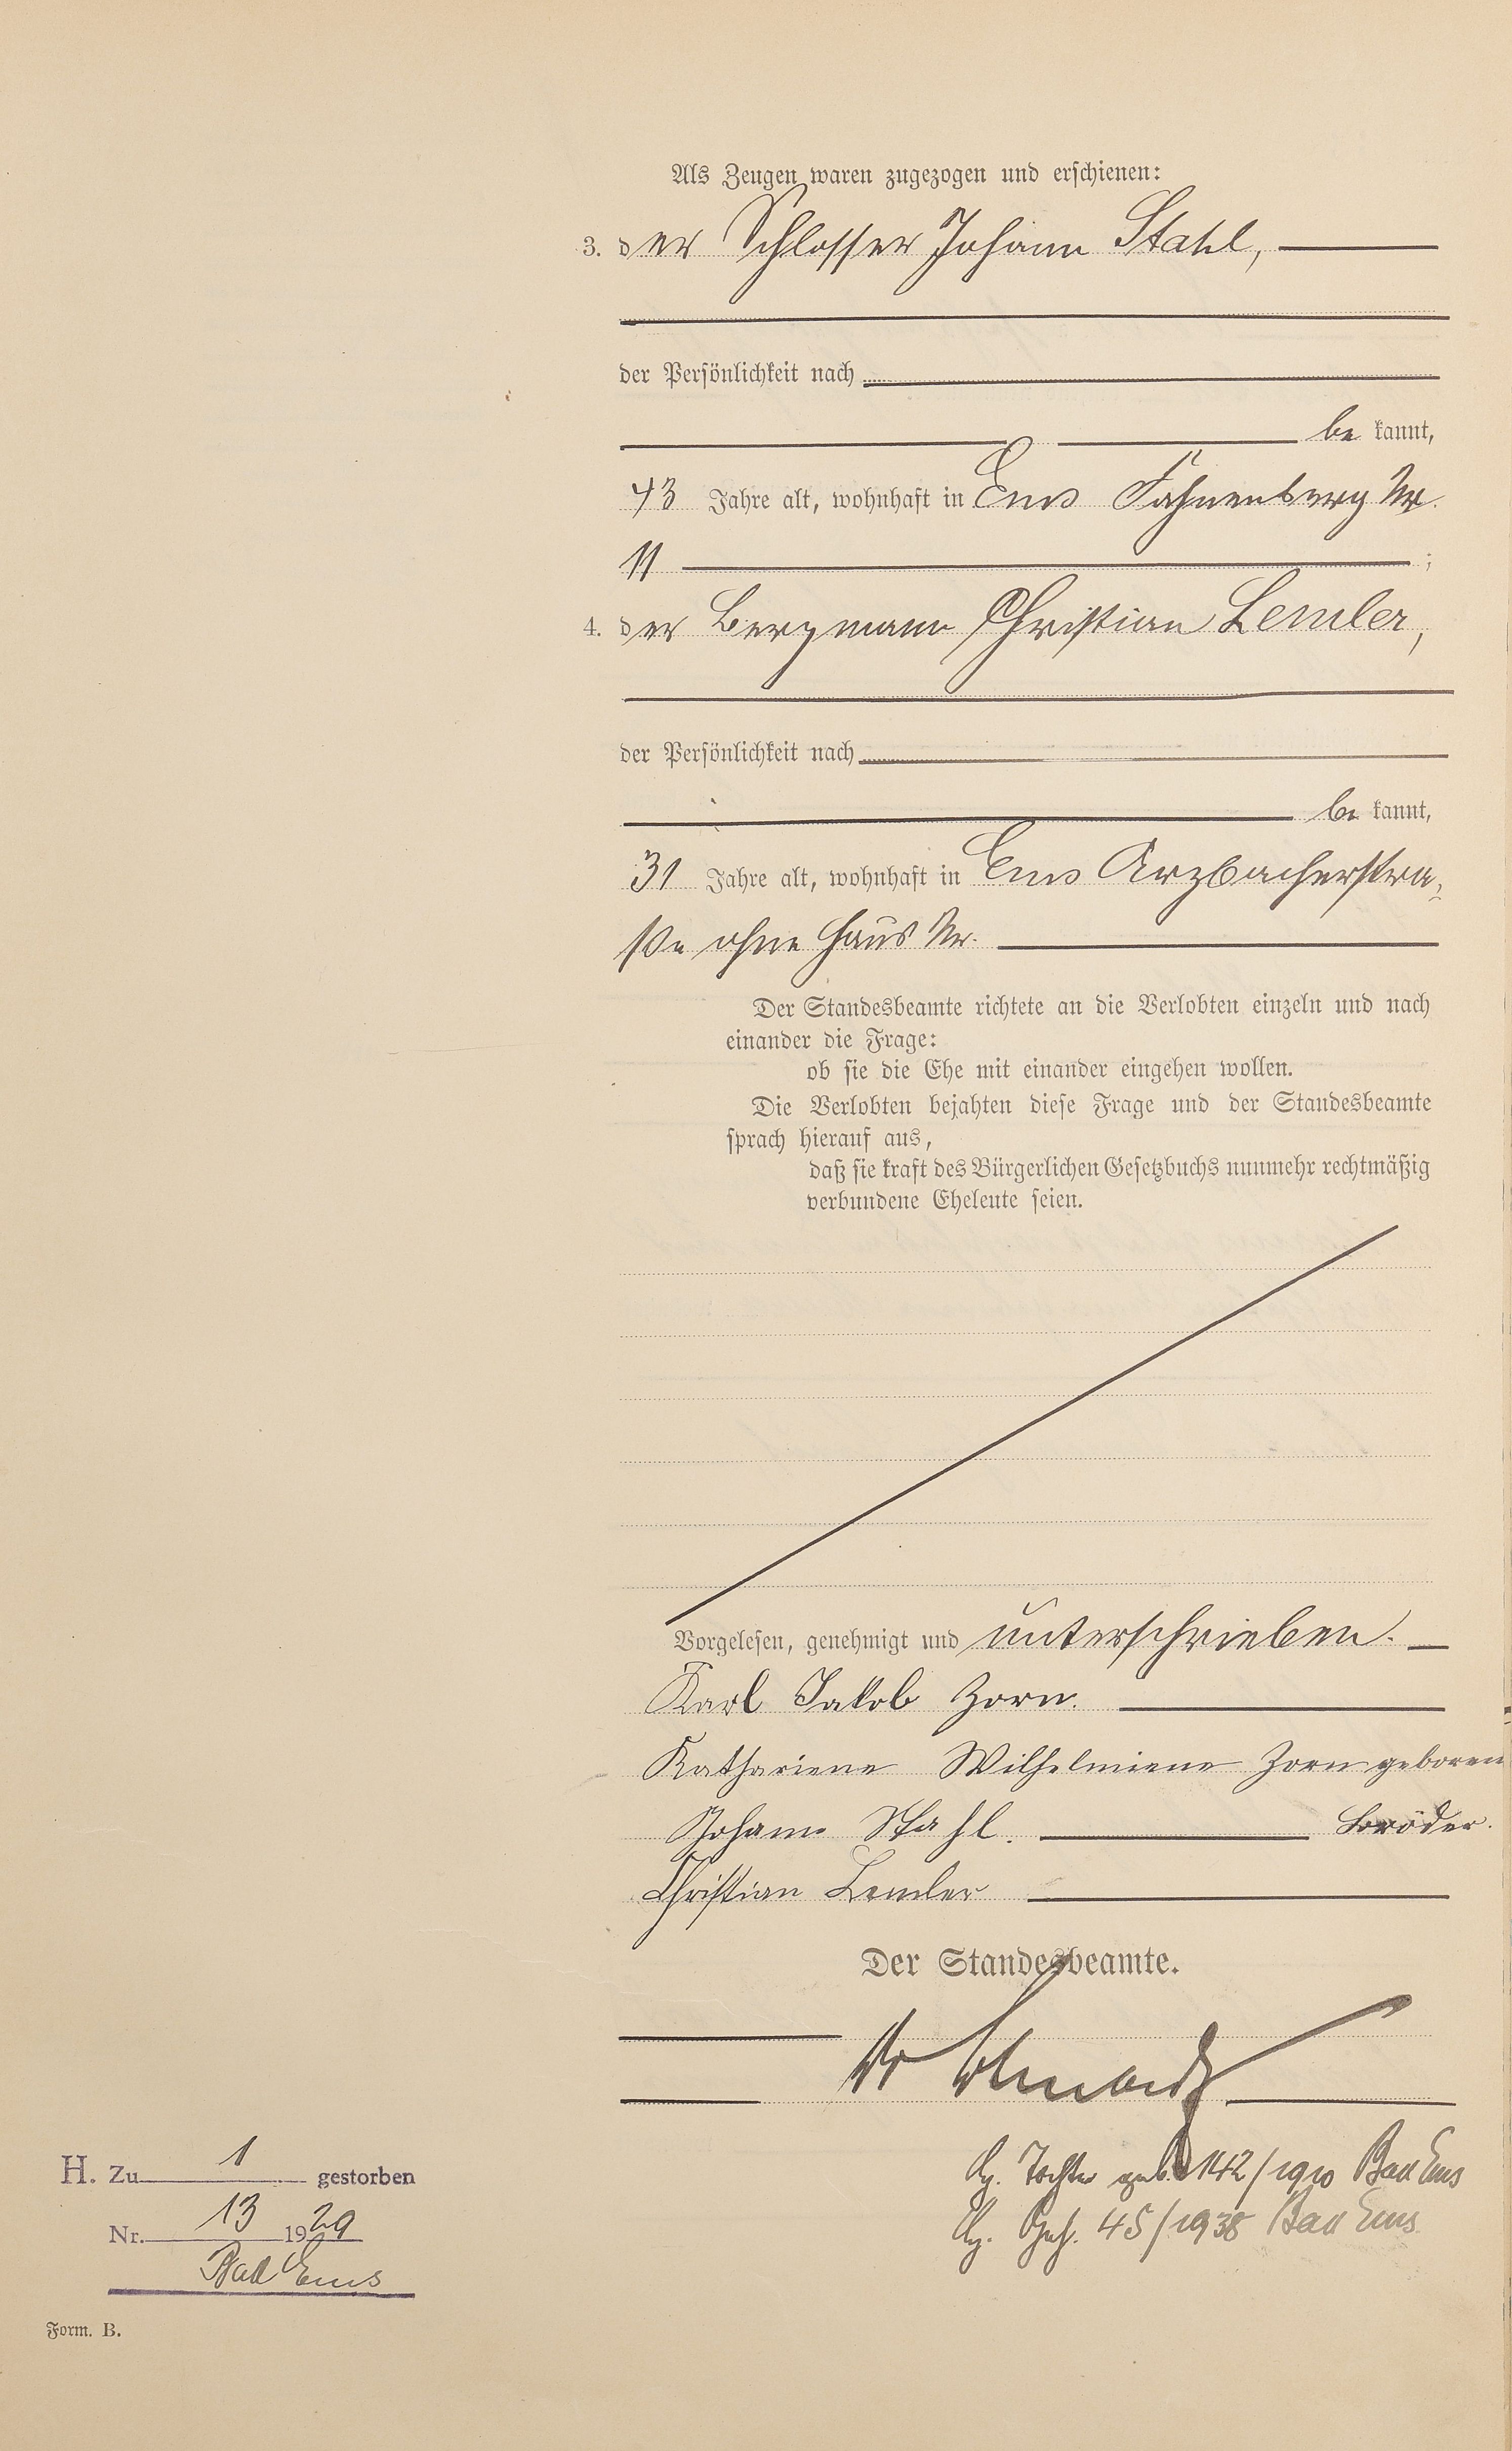 Als Zeugen waren zugezogen und erschienen:
3. der Schlosser Johann Stahl,
der Persönlichkeit nach
be kannt,
43 Jahre alt, wohnhaft in Ems Fahnenberg Nr.
11 ;
4. der Bergmann Christian Lemler,
der Persönlichkeit nach
be kannt,
31 Jahre alt, wohnhaft in Ems Arzbacherstra-
ße ohne Haus Nr.
Der Standesbeamte richtete an die Verlobten einzeln und nach
einander die Frage:
ob sie die Ehe mit einander eingehen wollen.
Die Verlobten bejahten diese Frage und der Standesbeamte
sprach hierauf aus,
daß sie kraft des Bürgerlichen Gesetzbuchs nunmehr rechtmäßig
verbundene Eheleute seien.
Vorgelesen, genehmigt und unterschrieben.
Karl Jakob Zorn.
Kathariene Wilhelmiene Zorn geboren
Johann Stahl. Bröder.
Christian Lemler
Der Standesbeamte.
Tochter geb. 142/1910 Bad Ems
45/1938 Bad Ems
H. Zu 1 gestorben
Nr. 13 1929
Bad Ems
Form. B.